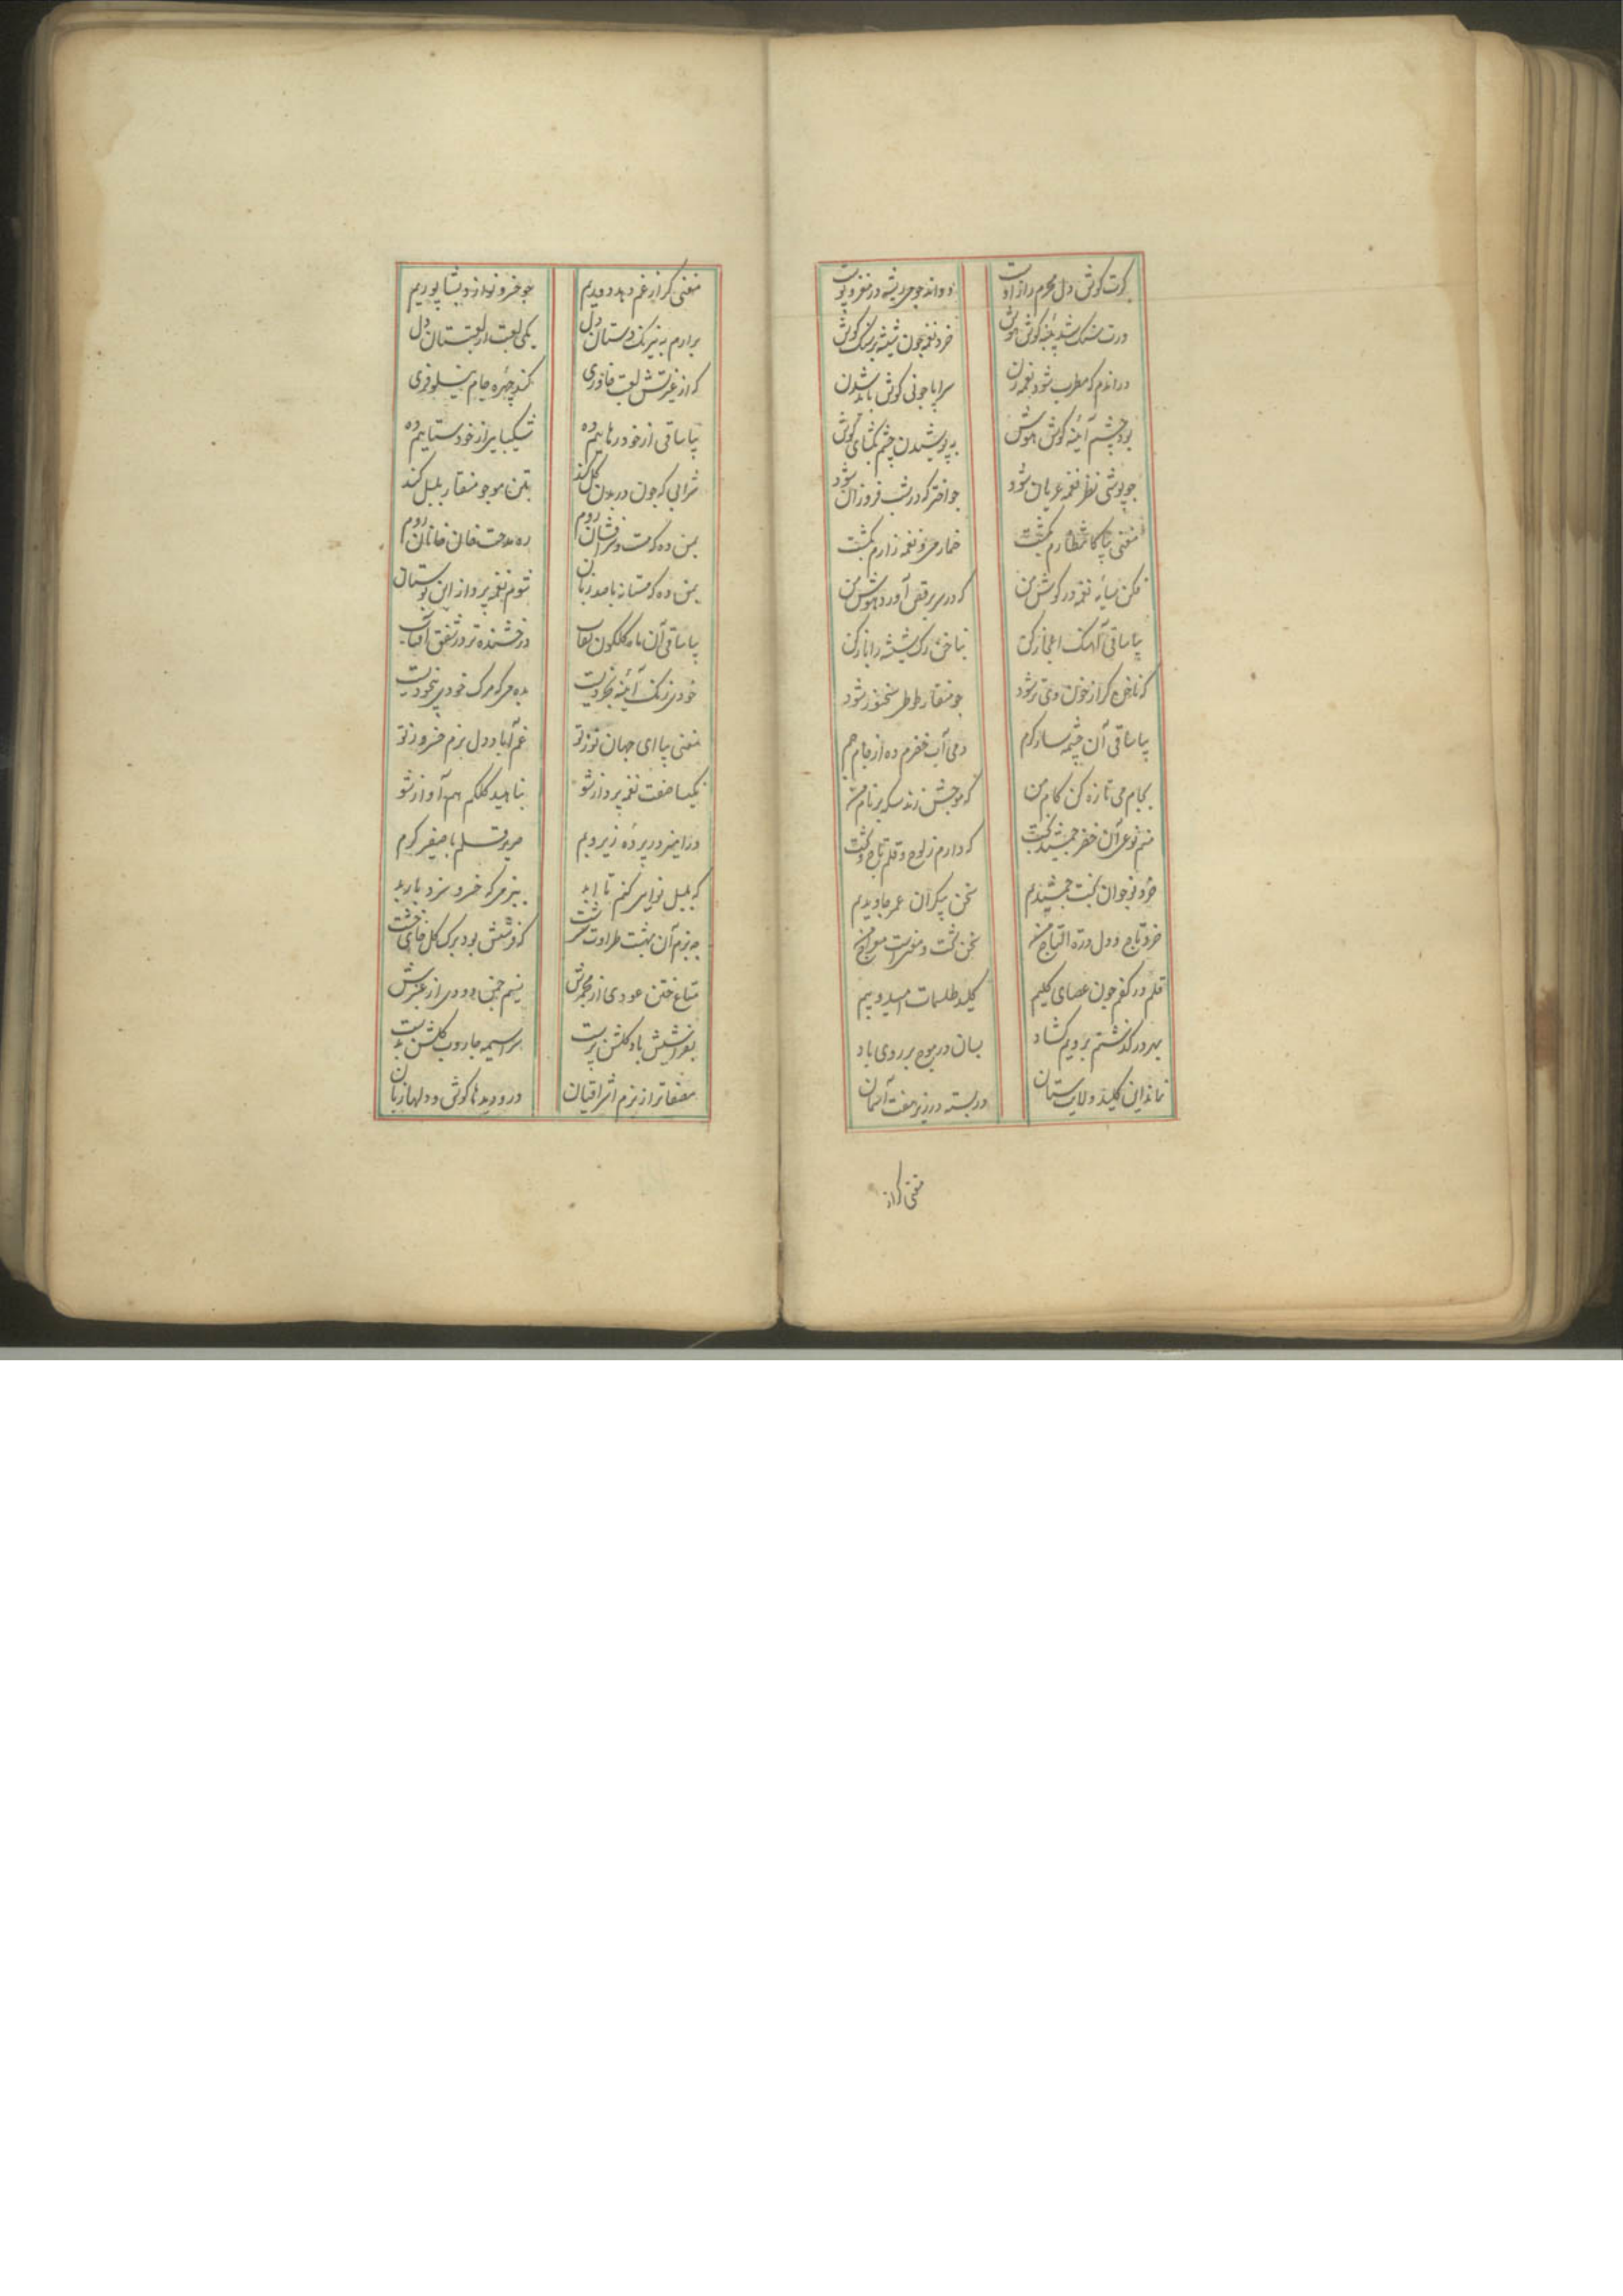 گرت گوش دل محرم راز اوست
دواند چو می ریشه در مغز و پوست
ورت سنگ شد پنبه گوش هوش
خورد نغمه چون شیشه بر سنگ گوش
در اندم که مطرب شود نغمه زن
سراپا چو نی گوش باید شدن
بود چشم آئینه گوش هوش
به پوشیدن چشم بگشای گوش
چو پوشی نظر نغمه عریان شود
چو اختر که در شب فروزان شود
مغنی بیا کانتظارم بکشت
خمار می و نغمه زارم بکشت
فکن سایه نغمه در گوش من
که در سر برقص آورد هوش من
بیا ساقی آهنگ اعجاز کن
بناخن رگ شیشه را باز کن
که ناخن گر از خون وی تر شود
چو منقار طوطی سخنور شود
بیا ساقی آن چشمه سار کرم
می آب خضرم ده از جام جم
بجام می تازه کن کام من
که موجش زند سکه بر نام من
منم نوعی آن خضر جمشید تخت
که دارم ز لوح و قلم تاج و تخت
خرد نوجوان تخت جمشیدیم
سخن پیکر آن عمر جاویدیم
خرد تاج و دل درة التاج من
سخن تخت و معنیست معراج من
قلم در کفم چون عصای کلیم
کلید طلسمات امید و بیم
بهر در گذشتم برویم گشاد
بسان در موج بر روی باد
نماند این کلید ولایت ستان
در بسته در زیر هفت آسمان
مغنی گر از
مغنی گر از غم دهد دوریم
چو خسرو نوازد نشاپوریم
برارم به نیرنگ دستان دل
یکی لعبت از لعبتستان دل
که از غیرتش لعبت خاوری
کند چهره جام نیلوفری
بیا ساقی از خود رهاییم ده
شکیبایی از خودستاییم ده
شرابی که چون در بدن گل کند
بتن مو چو منقار بلبل کند
بمن ده که مست و سرافشان روم
ره مدحت خان خانان روم
بمن ده که مستانه با صد زبان
شوم نغمه پرداز این بوستان
بیا ساقی آن ماه گلگون نقاب
درخشنده تر در شفق آفتاب
خودی زنگ آئینه بخردیست
بده می که مرگ خودی بیخودیست
مغنی بیا ای جهان توز تو
غم آباد دل بزم خسرو ز تو
نکیسا صفت نغمه پرداز شو
بناهید کلکم هم آواز شو
درامیز در پرده زیر و بم
صریر قلم با صفیر کرم
که بلبل نوایی کنم تا ابد
ببزمی که خسرو سزد باربد
چه بزم آن بهشت طراوت سرشت
که فرشش بود برگ گل جای خشت
متاع ختن عودی از مجمرش
نسیم چمن دودی از عنبرش
بفراشیش باد گلشن پرست
سراسیمه جاروب گلشن بدست
مصفاتر از بزم اشراقیان
درو دیدها گوش و دلها زبان